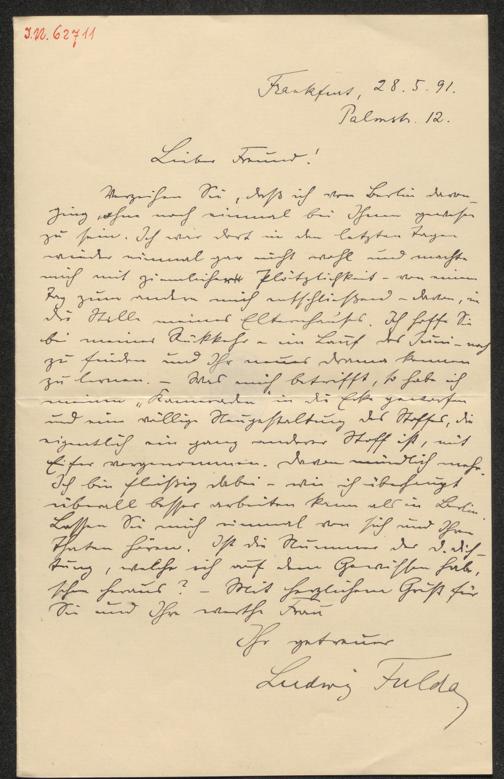 I.N. 62711
Frankfurt, 28.5.91.
Palmstr. 12.
Lieber Freund!
Verzeihen Sie, daß ich von Berlin davon
ging, ohne noch einmal bei Ihnen gewesen
zu sein. Ich war dort in den letzten Tagen
wieder einmal gar nicht wohl und machte
mich mit ziemlicher Plötzlichkeit – von einem
Tag zum andern mich entschließend – davon, in
die Stille meines Elternhauses. Ich hoffe Sie
bei meiner Rückkehr – im Lauf des Juni – noch
zu finden und Ihr neues Drama kennen
zu lernen. – Was mich betrifft, so habe ich
meine „Kameraden" in die Ecke geworfen
und eine völlige Neugestaltung des Stoffes, die
eigentlich ein ganz anderer Stoff ist, mit
Eifer vorgenommen. Davon mündlich mehr.
Ich bin fleißig dabei – wie ich überhaupt
überall besser arbeiten kann als in Berlin.
Lassen Sie mich einmal von sich und Ihren
Thaten hören. Ist die Nummer der d. Dich-
tung, welche ich auf dem Gewissen habe,
schon heraus? – Mit herzlichem Gruß für
Sie und Ihre werthe Frau
Ihr getreuer
Ludwig Fulda